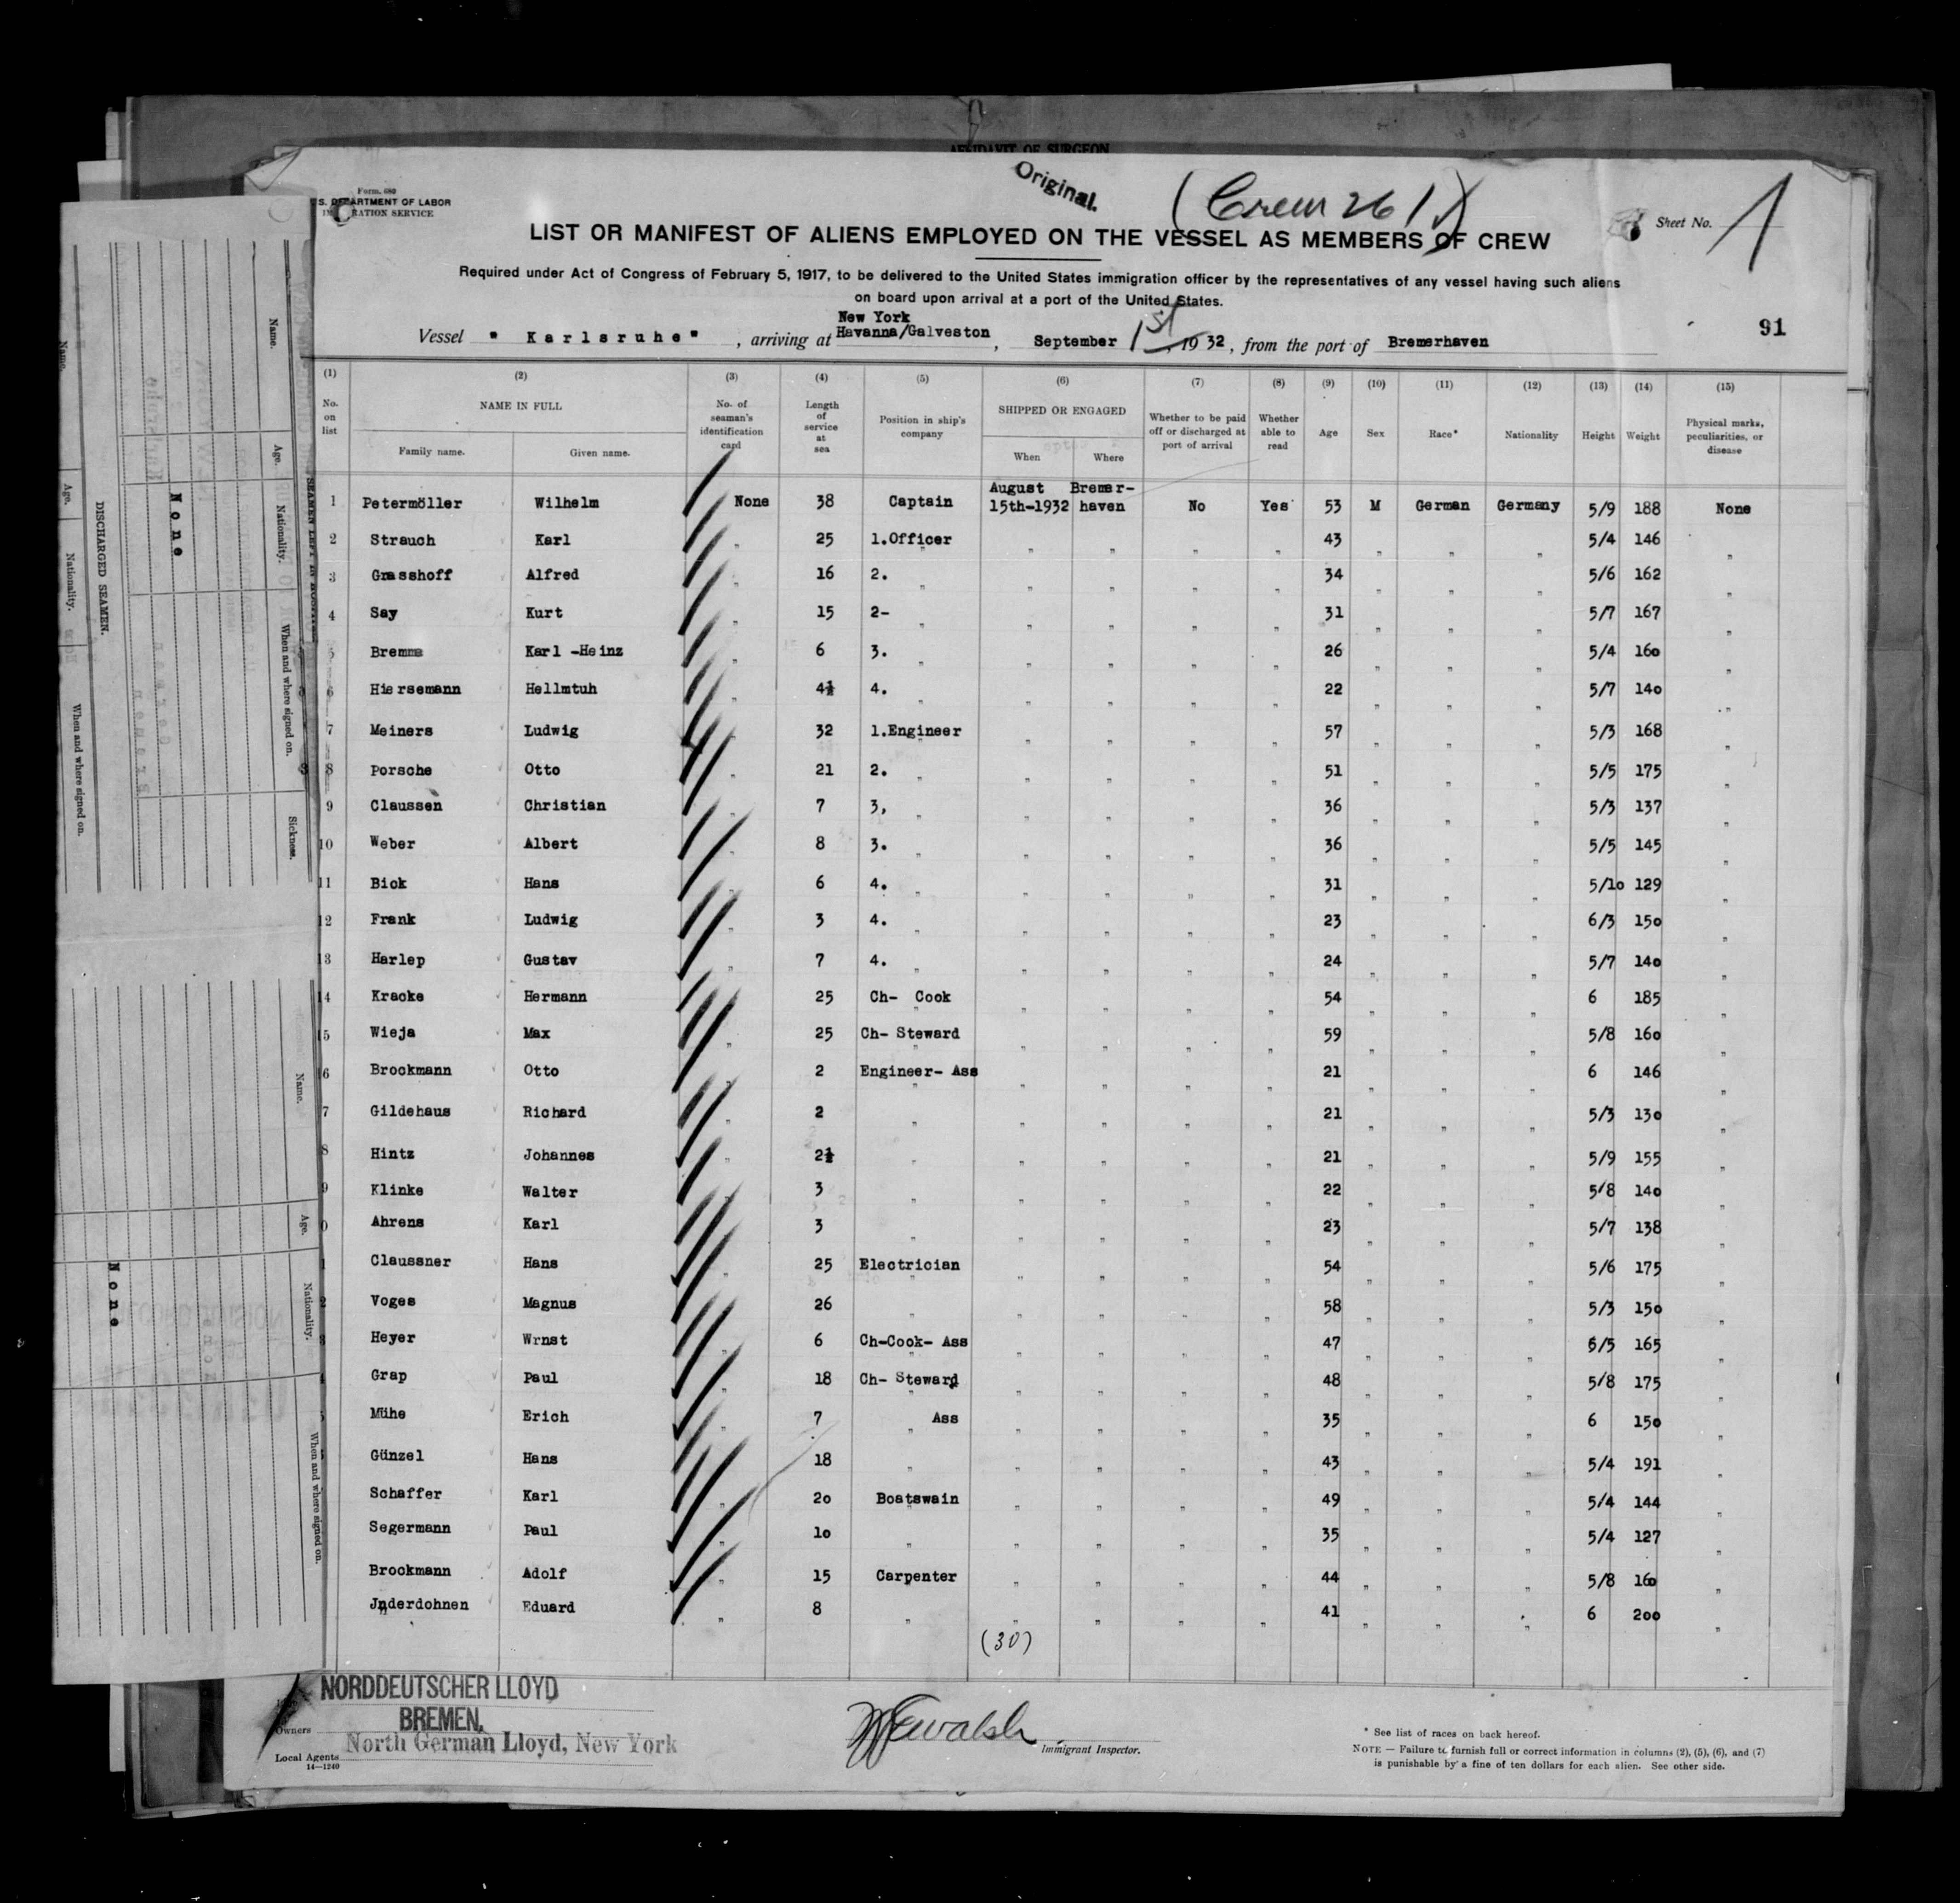 AFFIDAVIT OF SURGEON
Form. 680
S. DEPARTMENT OF LABOR
RATION SERVICE
Original.
(Crew 261)
Sheet No. 1
LIST OR MANIFEST OF ALIENS EMPLOYED ON THE VESSEL AS MEMBERS OF CREW
Required under Act of Congress of February 5, 1917, to be delivered to the United States immigration officer by the representatives of any vessel having such aliens
on board upon arrival at a port of the United States.
91
New York
Vessel " Karlsruhe" , arriving at Havanna/Galveston , September 1st , 19 32, from the port of Bremerhaven
(1) (2) (3) (4) (5) (6) (7) (8) (9) (10) (11) (12) (13) (14) (15)
No. on list NAME IN FULL Family name. Given name. No. of seaman's identification card Length of service at sea Position in ship's company SHIPPED OR ENGAGED When Where Whether to be paid off or discharged at port of arrival Whether able to read Age Sex Race* Nationality Height Weight Physical marks, peculiarities, or disease
1 Petermöller Wilhelm None 38 Captain August 15th-1932 Bremer-haven No Yes 53 M German Germany 5/9 188 None
2 Strauch Karl " 25 1.Officer " " " " 43 " " " 5/4 146 "
3 Grasshoff Alfred " 16 2. " " " " " 34 " " " 5/6 162 "
4 Say Kurt " 15 2- " " " " " 31 " " " 5/7 167 "
5 Bremme Karl -Heinz " 6 3. " " " " " 26 " " " 5/4 160 "
6 Hiersemann Hellmtuh " 4½ 4. " " " " " 22 " " " 5/7 140 "
7 Meiners Ludwig " 32 1.Engineer " " " " 57 " " " 5/3 168 "
8 Porsche Otto " 21 2. " " " " " 51 " " " 5/5 175 "
9 Claussen Christian " 7 3, " " " " " 36 " " " 5/3 137 "
10 Weber Albert " 8 3. " " " " " 36 " " " 5/5 145 "
11 Bick Hans " 6 4. " " " " " 31 " " " 5/10 129 "
12 Frank Ludwig " 3 4. " " " " " 23 " " " 6/3 150 "
13 Harlep Gustav " 7 4. " " " " " 24 " " " 5/7 140 "
14 Kracke Hermann " 25 Ch- Cook " " " " 54 " " " 6 185 "
15 Wieja Max " 25 Ch- Steward " " " " 59 " " " 5/8 160 "
6 Brockmann Otto " 2 Engineer- Ass " " " " 21 " " " 6 146 "
7 Gildehaus Richard " 2 " " " " " 21 " " " 5/3 130 "
8 Hintz Johannes " 2½ " " " " " 21 " " " 5/9 155 "
9 Klinke Walter " 3 " " " " " 22 " " " 5/8 140 "
0 Ahrens Karl " 3 " " " " " 23 " " " 5/7 138 "
1 Claussner Hans " 25 Electrician " " " " 54 " " " 5/6 175 "
2 Voges Magnus " 26 " " " " " 58 " " " 5/3 150 "
3 Heyer Wrnst " 6 Ch-Cook- Ass " " " " 47 " " " 5/5 165 "
4 Grap Paul " 18 Ch- Steward " " " " 48 " " " 5/8 175 "
Mühe Erich " 7 " Ass " " " " 35 " " " 6 150 "
Günzel Hans " 18 " " " " " 43 " " " 5/4 191 "
Schaffer Karl " 20 Boatswain " " " " 49 " " " 5/4 144 "
Segermann Paul " 10 " " " " " 35 " " " 5/4 127 "
Brockmann Adolf " 15 Carpenter " " " " 44 " " " 5/8 160 "
Jnderdohnen Eduard " 8 " " " " " 41 " " " 6 200 "
(30)
NORDDEUTSCHER LLOYD
BREMEN,
Owners
North German Lloyd, New York
Local Agents
14—1240
Immigrant Inspector.
* See list of races on back hereof.
NOTE — Failure to furnish full or correct information in columns (2), (5), (6), and (7)
is punishable by a fine of ten dollars for each alien. See other side.
SEAMEN LEFT IN HOSPITAL
Name. Age. Nationality. When and where signed on. Sickness.
None
DISCHARGED SEAMEN.
Name. Age. Nationality. When and where signed on.
Name. Age. Nationality. When and where signed on.
None